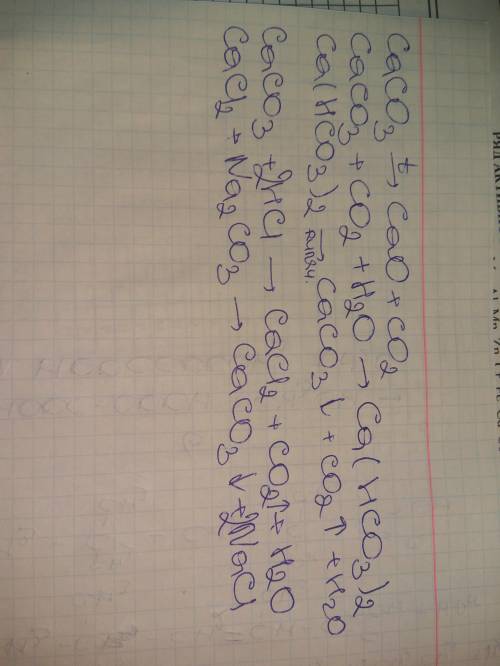 CaCO3 t→ CaO + CO2
CaCO3 + CO2 + H2O → Ca(HCO3)2
Ca(HCO3)2 →кипяч. CaCO3↓ + CO2↑ + H2O
CaCO3 + 2HCl → CaCl2 + CO2↑ + H2O
CaCl2 + Na2CO3 → CaCO3↓ + 2NaCl